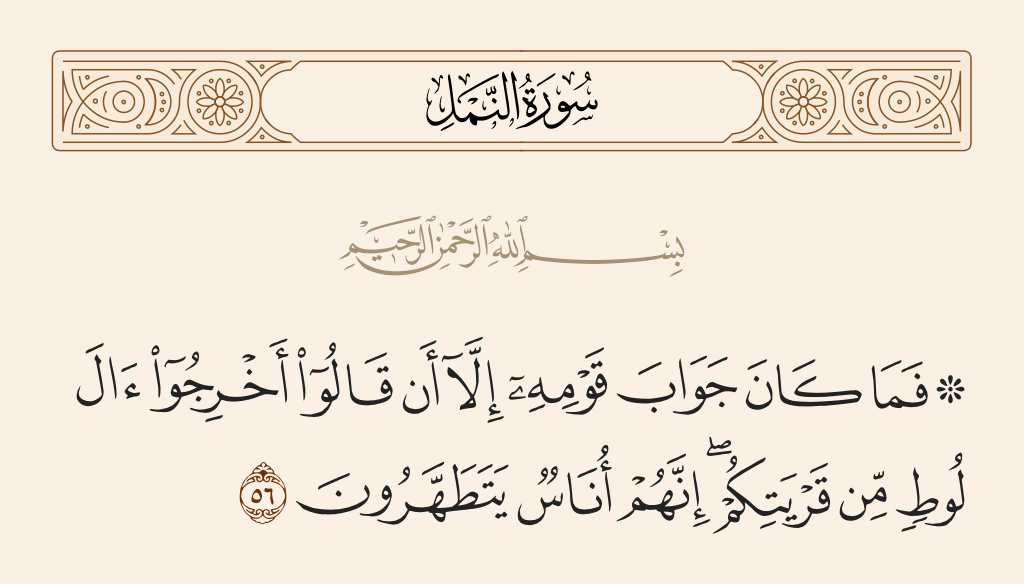 سُورَةُ النَّمْلِ
بِسْمِ ٱللَّهِ ٱلرَّحْمَٰنِ ٱلرَّحِيمِ
۞ فَمَا كَانَ جَوَابَ قَوْمِهِۦٓ إِلَّآ أَن قَالُوٓا۟ أَخْرِجُوٓا۟ ءَالَ
لُوطٍ مِّن قَرْيَتِكُمْ ۖ إِنَّهُمْ أُنَاسٌ يَتَطَهَّرُونَ ٥٦